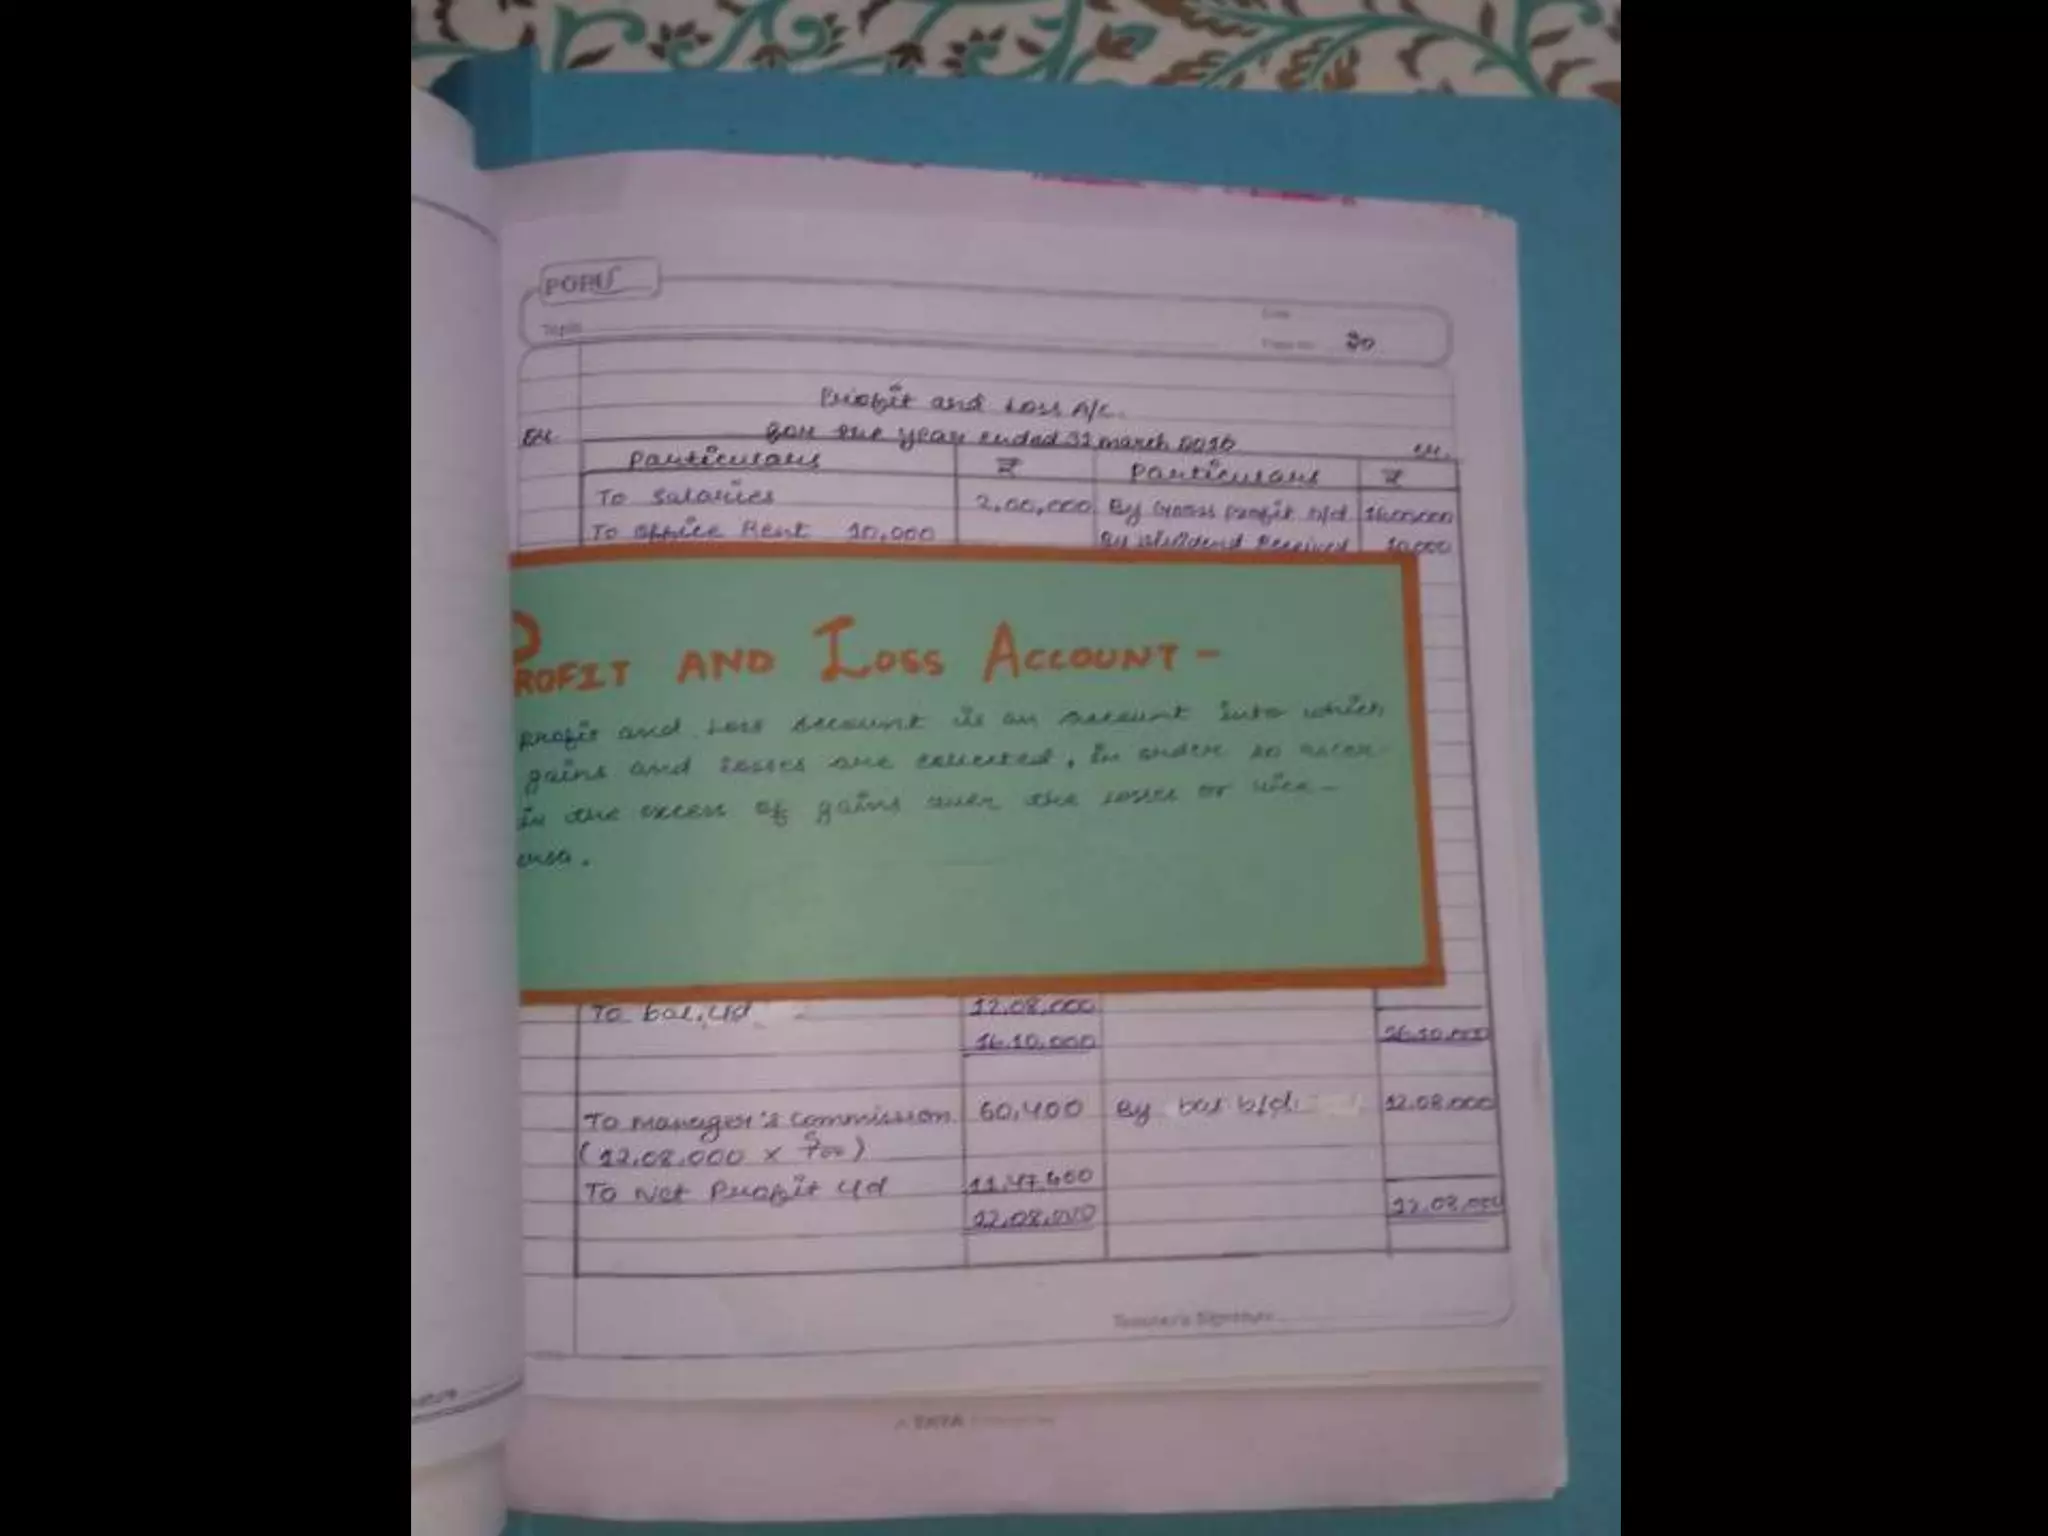 Topic
Page No. 20
Profit and Loss A/c.
for the year ended 31 march 2016
Dr. Cr.
Particulars ₹ Particulars ₹
To Salaries 2,00,000 By Gross Profit b/d 16,00,000
To Office Rent 10,000 By dividend Received 10,000
PROFIT AND LOSS ACCOUNT -
profit and Loss account is an account into which
gains and losses are collected, in order to
in the excess of gains over the losses or vice-
ersa.
To bal. c/d 12,08,000
16,10,000 16,10,000
To Manager's Commission 60,400 By bal b/d. 12,08,000
(12,08,000 x 5/100)
To Net Profit c/d 11,47,600
12,08,000 12,08,000
Teacher's Signature
A TATA